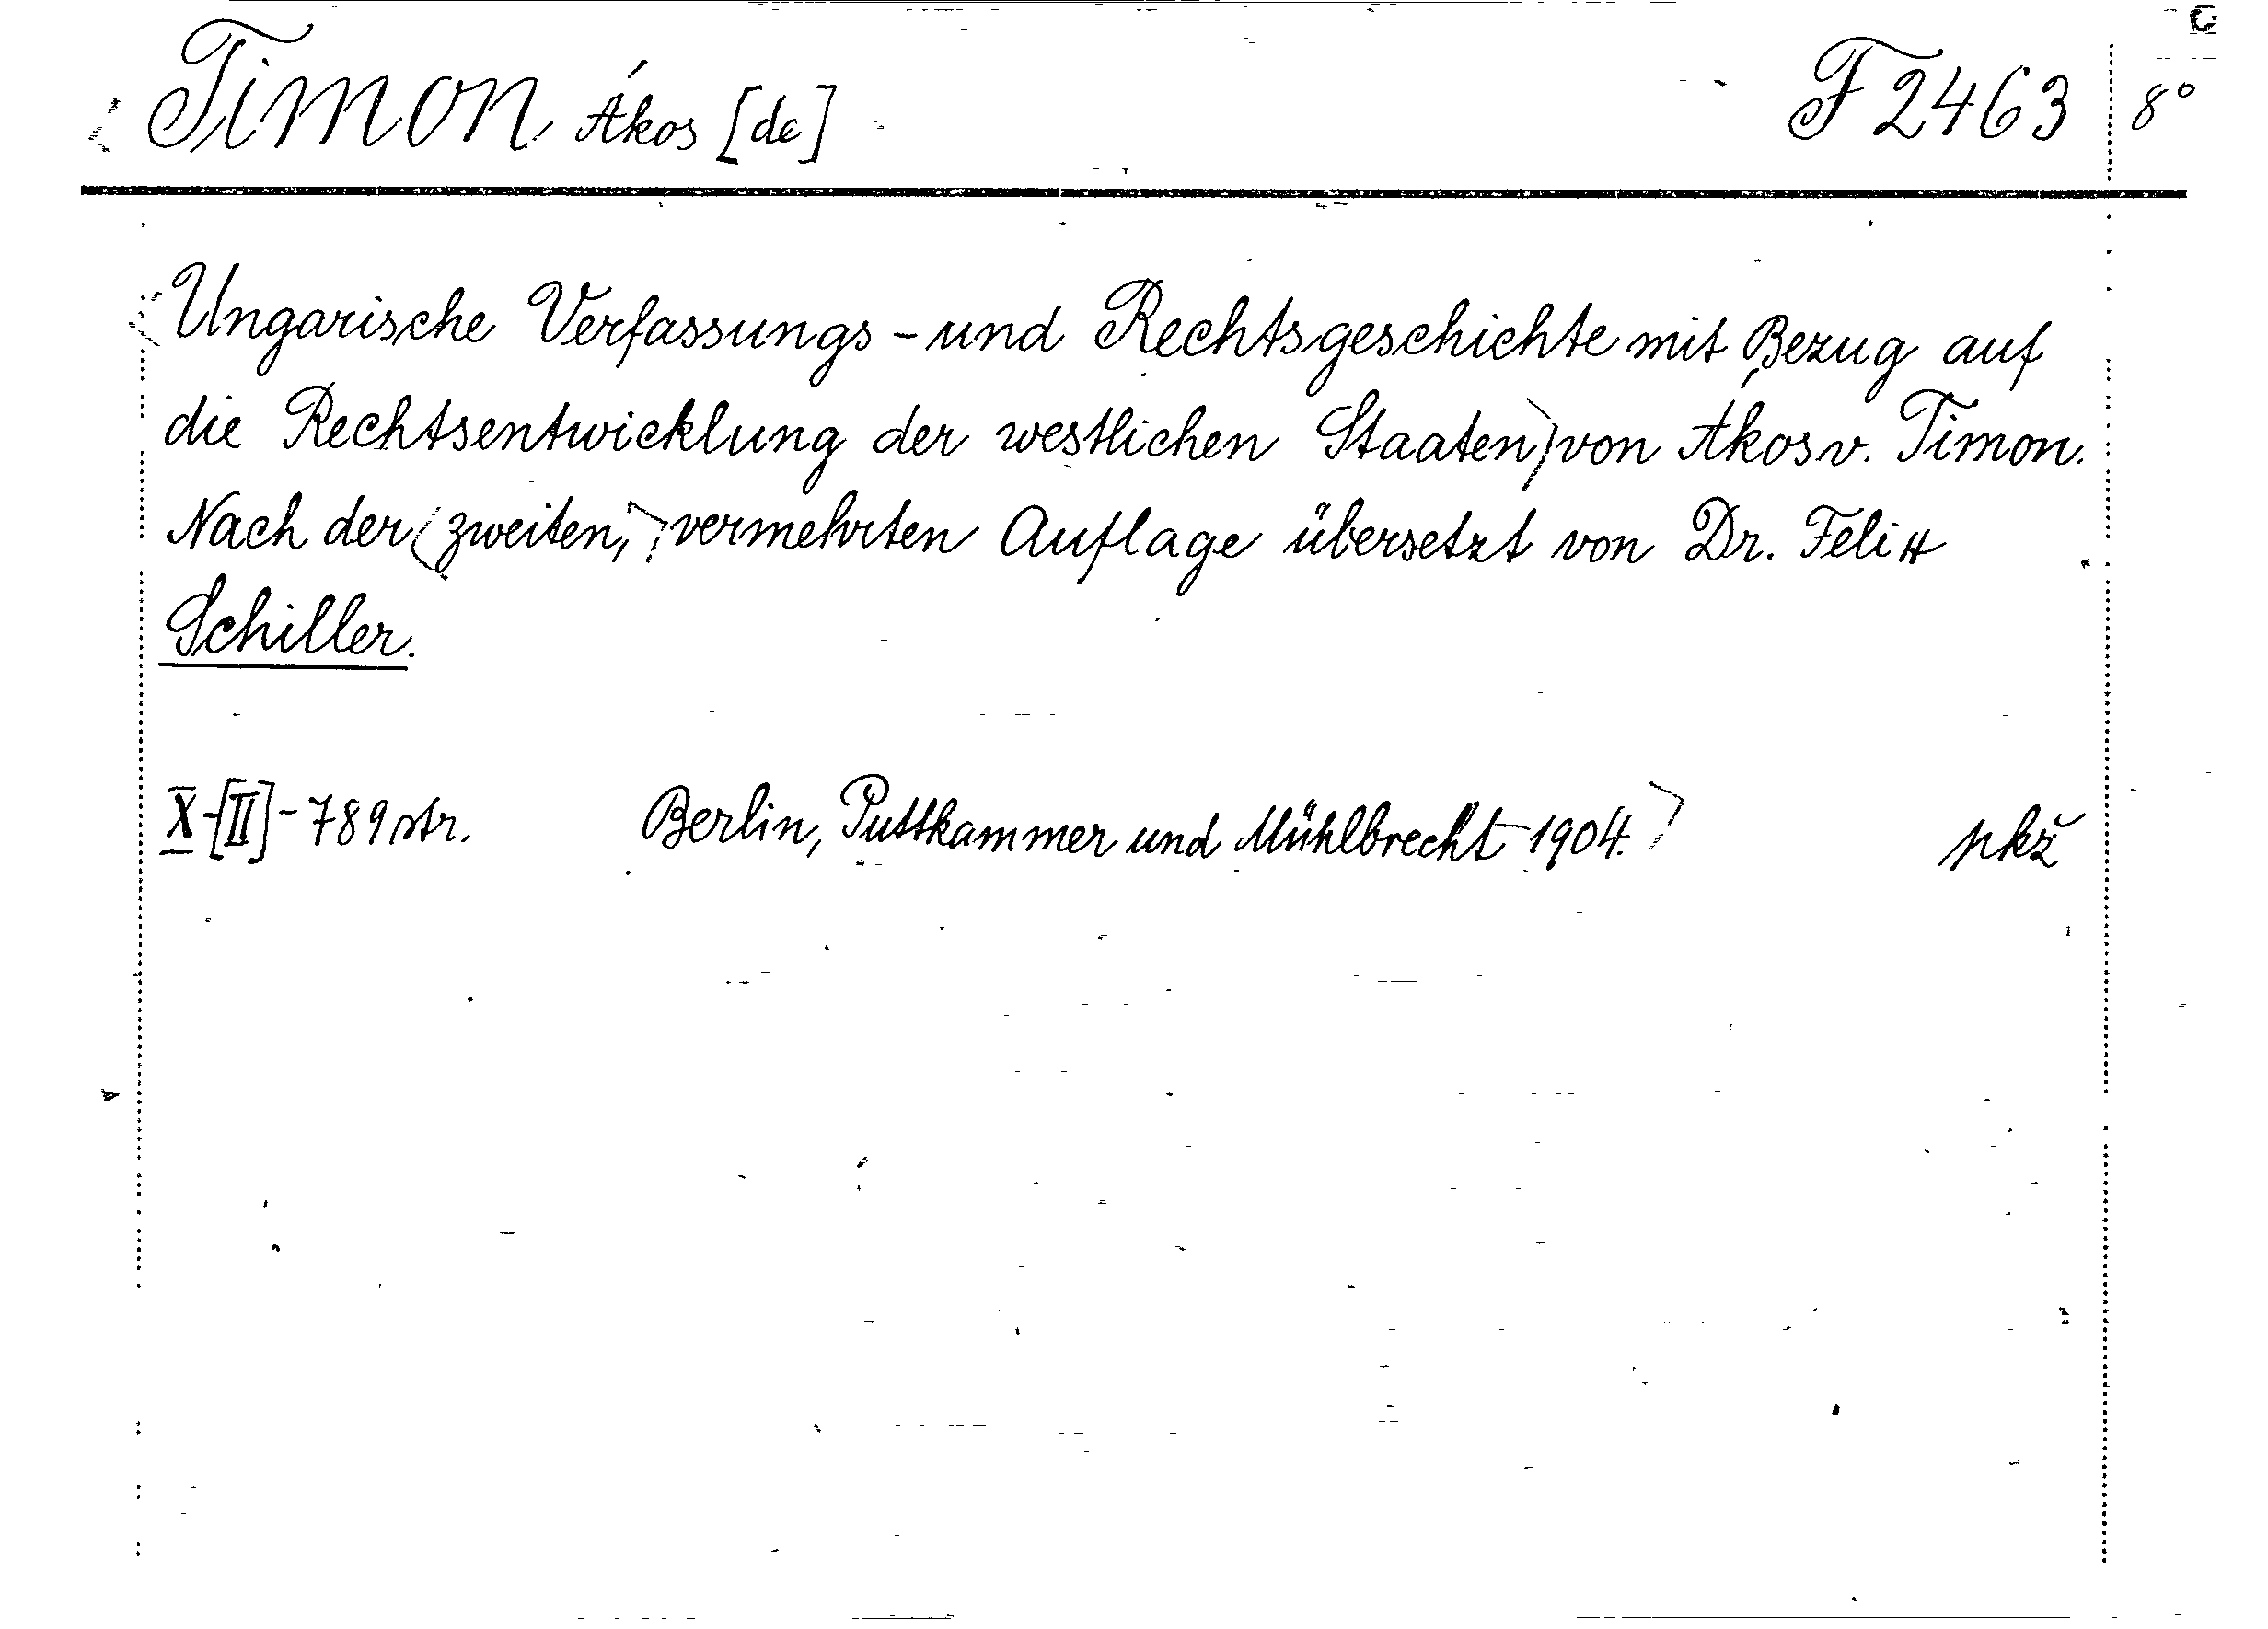 Timon Ákos [de] F 2463 8°
Ungarische Verfassungs - und Rechtsgeschichte mit Bezug auf
die Rechtsentwicklung der westlichen Staaten) von Ákos v. Timon.
Nach der (zweiten,) vermehrten Auflage übersetzt von Dr. Felix
Schiller.
X-[II]-789 str. Berlin, Puttkammer und Mühlbrecht 1904. pkž